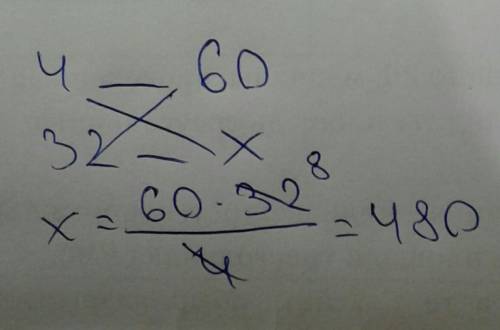 4 — 60
32 — x
x = 60 · 32 8 / 4 = 480